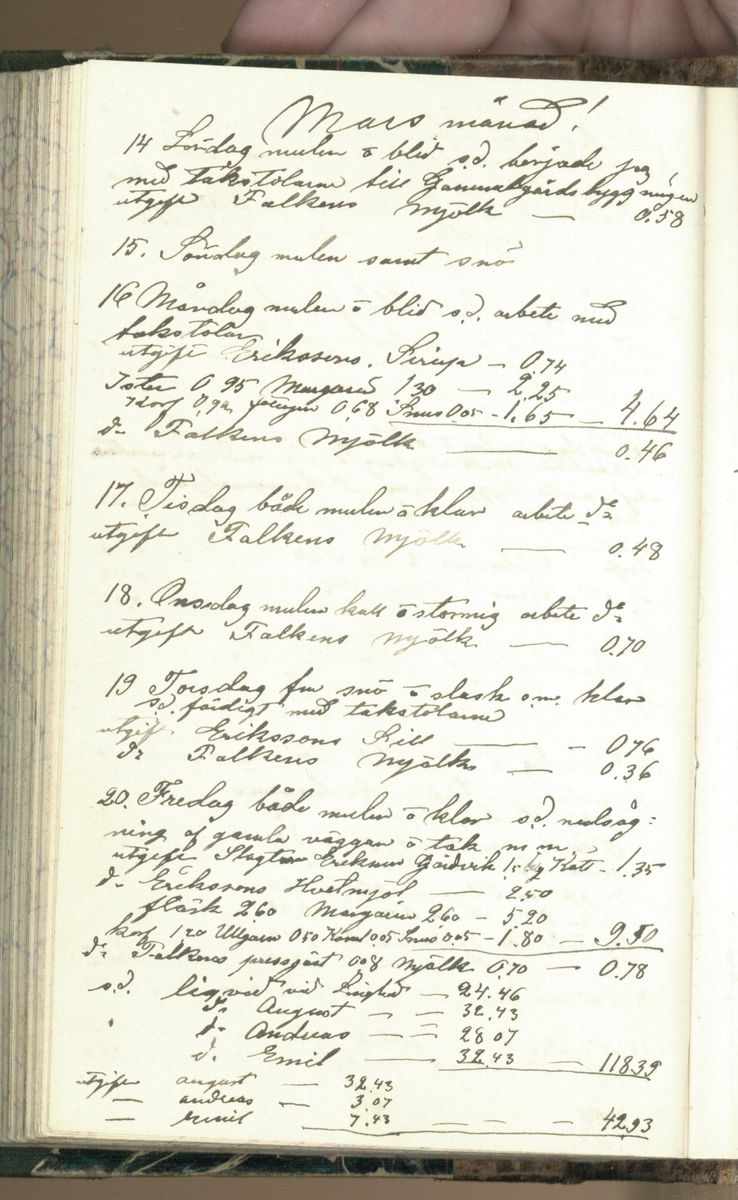 Mars månad!
14 Lördag mulen o blid s.d. började jag
med takstolarne till Gammalgårds byggningen
utgift Falkens Mjölk — 0.58
15. Söndag mulen samt snö
16 Måndag mulen o blid s.d. arbete med
takstolar
utgift Erikssons. Sirap — 0.74
Ister 0.95 Margarin 1.30 — 2.25
Korf 0.92 0.68 Snus 0.05 - 1.65 — 4.64
do Falkens Mjölk — 0.46
17. Tisdag både mulen o klar arbete do
utgift Falkens Mjölk — 0.48
18. Onsdag mulen kall o stormig arbete do
utgift Falkens Mjölk — 0.70
19 Torsdag fm snö o slask e.m. klar
s.d. färdigt med takstolarne
utgift. Erikssons Sill — 0.76
do Falkens Mjölk — 0.36
20. Fredag både mulen o klar s.d. nedsåg=
ning af gamla väggar o tak m.m.
utgift Slagtare Gärdvik Kött - 1.35
do Erikssons Hvetmjöl — 2.50
fläsk 2.60 Margarin 2.60 - 5.20
korf 1.20 Ullgarn 0.50 0.05 Snus 0.05 - 1.80 — 9.50
do Falkens pressgäst 0.08 Mjölk 0.70 — 0.78
s.d. liqvid vid — 24.46
do August — 32.43
do Andreas — 28.07
do Emil — 32.43 — 118.39
utgift august — 32.43
— andreas — 3.07
— emil 7.43 — 42.93